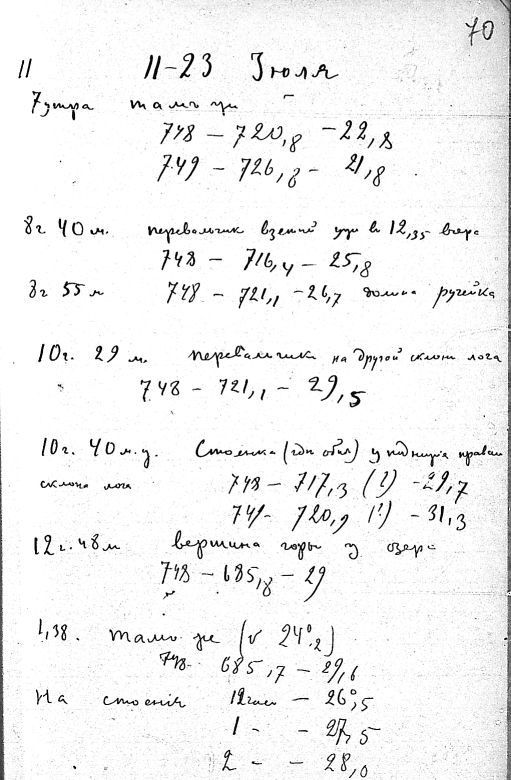 70
11 11-23 Іюля
7 утра тамъ же
748 - 720,8 - 22,8
749 - 726,8 - 21,8
8 г 40 м. перевальчик взятый уже в 12,35 вчера
748 - 716,4 - 25,8
8 г 55 м 748 - 721,1 - 26,7 долина ручейка
10 г. 29 м. перевальчик на другой склон лога
748 - 721,1 - 29,5
10 г. 40 м. у. Стоянка (где обед) у подножія правого
склона лога 748 - 717,3 (!) - 29,7
749 - 720,9 (!) - 31,3
12 г. 48 м вершина горы у озера
748 - 685,8 - 29
1,38. тамъ же (v 24°,2)
748 - 685,7 - 29,6
На стоянкѣ 12 час - 26°,5
1 - - 27,5
2 - - 28,0